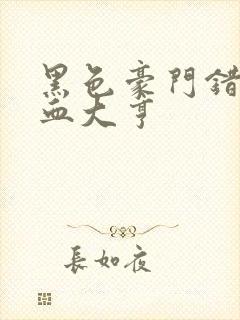 黑色豪門錯
血大亨
長如夜